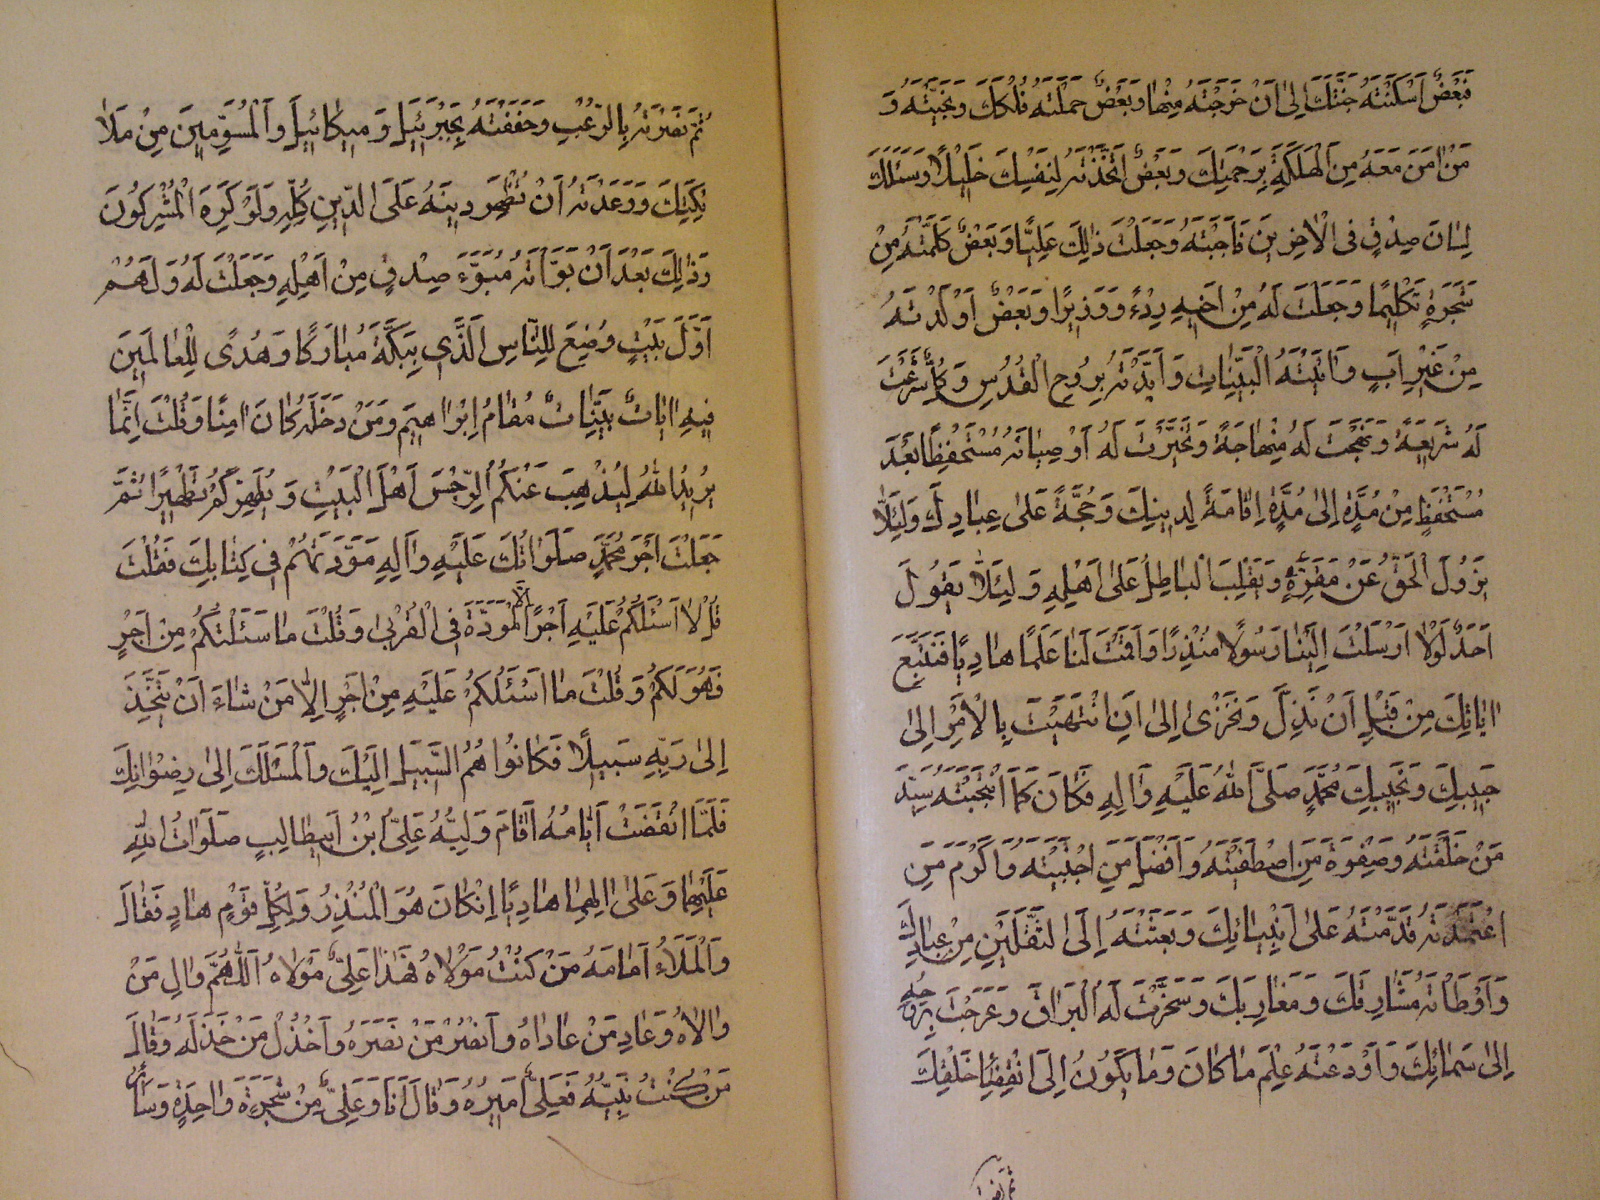 فَبَعْضٌ اَسْكَنْتَهُ جَنَّتَكَ اِلىٰ اَنْ خَرَجْتَهُ مِنْهٰا وَبَعْضٌ حَمَلْتَهُ فُلْكِكَ وَنَجَّيْتَهُ وَ
مَنْ اٰمَنَ مَعَهُ مِنَ الْهَلَكَةِ بِرَحْمَتِكَ وَبَعْضٌ اتَّخَذْتَهُ لِنَفْسِكَ خَلِيْلًا وَسَئَلَكَ
لِسٰانَ صِدْقٍ فِى الْاٰخِرِيْنَ فَاَجَبْتَهُ وَجَعَلْتَ ذٰلِكَ عَلِيًّا وَبَعْضٌ كَلَّمْتَهُ مِنْ
شَجَرَةٍ تَكْلِيْمًا وَجَعَلْتَ لَهُ مِنْ اَخِيْهِ رِدْءً وَوَزِيْرًا وَبَعْضٌ اَوْلَدْتَهُ
مِنْ غَيْرِ اَبٍ وَاٰتَيْتَهُ الْبَيِّنٰاتِ وَاَيَّدْتَهُ بِرُوْحِ الْقُدُسِ وَكُلٌّ شَرَعْتَ
لَهُ شَرِيْعَةً وَنَهَجْتَ لَهُ مِنْهٰاجَةً وَتَخَيَّرْتَ لَهُ اَوْصِيٰاءَهُ مُسْتَحْفِظًا بَعْدَ
مُسْتَحْفِظٍ مِنْ مُدَّةٍ اِلىٰ مُدَّةٍ اِقٰامَةً لِدِيْنِكَ وَحُجَّةً عَلىٰ عِبٰادِكَ وَلِئَلّٰا
يَزُوْلَ الْحَقُّ عَنْ مَقَرِّهِ وَيَغْلِبَ الْبٰاطِلُ عَلىٰ اَهْلِهِ وَلِئَلّٰا يَقُوْلَ
اَحَدٌ لَوْلٰا اَرْسَلْتَ اِلَيْنٰا رَسُوْلًا مُنْذِرًا وَاَقَمْتَ لَنٰا عَلَمًا هٰادِيًا فَنَتَّبِعَ
اٰيٰاتِكَ مِنْ قَبْلِ اَنْ نَذِلَّ وَنَخْزىٰ اِلىٰ اَنِ انْتَهَيْتَ بِالْاَمْرِ اِلىٰ
حَبِيْبِكَ وَنَجِيْبِكَ مُحَمَّدٍ صَلَّى اللّٰهُ عَلَيْهِ وَاٰلِهِ فَكٰانَ كَمَا انْتَجَبْتَهُ سَيِّدَ
مَنْ خَلَقْتَهُ وَصَفْوَةَ مَنِ اصْطَفَيْتَهُ وَاَفْضَلَ مَنِ اجْتَبَيْتَهُ وَاَكْرَمَ مَنِ
اعْتَمَدْتَهُ قَدَّمْتَهُ عَلىٰ اَنْبِيٰائِكَ وَبَعَثْتَهُ اِلَى الثَّقَلَيْنِ مِنْ عِبٰادِكَ
وَاَوْطَأْتَهُ مَشٰارِقَكَ وَمَغٰارِبَكَ وَسَخَّرْتَ لَهُ الْبُرٰاقَ وَعَرَجْتَ بِرُوْحِهِ
اِلىٰ سَمٰائِكَ وَاَوْدَعْتَهُ عِلْمَ مٰا كٰانَ وَمٰا يَكُوْنُ اِلَى انْقِضٰاءِ خَلْقِكَ
ثم نصرته
ثُمَّ نَصَرْتَهُ بِالرُّعْبِ وَحَفَفْتَهُ بِجَبْرَئِيْلَ وَمِيْكٰائِيْلَ وَالْمُسَوِّمِيْنَ مِنْ مَلٰا
ئِكَتِكَ وَوَعَدْتَهُ اَنْ تُظْهِرَ دِيْنَهُ عَلَى الدِّيْنِ كُلِّهِ وَلَوْ كَرِهَ الْمُشْرِكُوْنَ
وَذٰلِكَ بَعْدَ اَنْ بَوَّأْتَهُ مُبَوَّءَ صِدْقٍ مِنْ اَهْلِهِ وَجَعَلْتَ لَهُ وَلَهُمْ
اَوَّلَ بَيْتٍ وُضِعَ لِلنّٰاسِ الَّذِي بِبَكَّةَ مُبٰارَكًا وَهُدًى لِلْعٰالَمِيْنَ
فِيْهِ اٰيٰاتٌ بَيِّنٰاتٌ مَقٰامُ اِبْرٰاهِيْمَ وَمَنْ دَخَلَهُ كٰانَ اٰمِنًا وَقُلْتَ اِنَّمٰا
يُرِيْدُ اللّٰهُ لِيُذْهِبَ عَنْكُمُ الرِّجْسَ اَهْلَ الْبَيْتِ وَيُطَهِّرَكُمْ تَطْهِيْرًا ثُمَّ
جَعَلْتَ اَجْرَ مُحَمَّدٍ صَلَوٰاتُكَ عَلَيْهِ وَاٰلِهِ مَوَدَّتَهُمْ فِي كِتٰابِكَ فَقُلْتَ
قُلْ لٰا اَسْئَلُكُمْ عَلَيْهِ اَجْرًا اِلَّا الْمَوَدَّةَ فِى الْقُرْبىٰ وَقُلْتَ مٰا سَئَلْتُكُمْ مِنْ اَجْرٍ
فَهُوَ لَكُمْ وَقُلْتَ مٰا اَسْئَلُكُمْ عَلَيْهِ مِنْ اَجْرٍ اِلّٰا مَنْ شٰاءَ اَنْ يَتَّخِذَ
اِلىٰ رَبِّهِ سَبِيْلًا فَكٰانُوْا هُمُ السَّبِيْلَ اِلَيْكَ وَالْمَسْلَكَ اِلىٰ رِضْوٰانِكَ
فَلَمَّا انْقَضَتْ اَيّٰامُهُ اَقٰامَ وَلِيَّهُ عَلِيَّ ابْنَ اَبِيْطٰالِبٍ صَلَوٰاتُ اللّٰهِ
عَلَيْهِمٰا وَعَلىٰ اٰلِهِمٰا هٰادِيًا اِذْ كٰانَ هُوَ الْمُنْذِرُ وَلِكُلِّ قَوْمٍ هٰادٍ فَقٰالَ
وَالْمَلَاُ اَمٰامَهُ مَنْ كُنْتُ مَوْلٰاهُ فَهٰذٰا عَلِيٌّ مَوْلٰاهُ اَللّٰهُمَّ وٰالِ مَنْ
وٰالٰاهُ وَعٰادِ مَنْ عٰادٰاهُ وَانْصُرْ مَنْ نَصَرَهُ وَاخْذُلْ مَنْ خَذَلَهُ وَقٰالَ
مَنْ كُنْتُ نَبِيَّهُ فَعَلِيٌّ اَمِيْرُهُ وَقٰالَ اَنَا وَعَلِيٌّ مِنْ شَجَرَةٍ وٰاحِدَةٍ وَسٰائِرُ